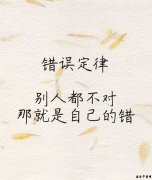 错误定律
别人都不对
那就是自己的错